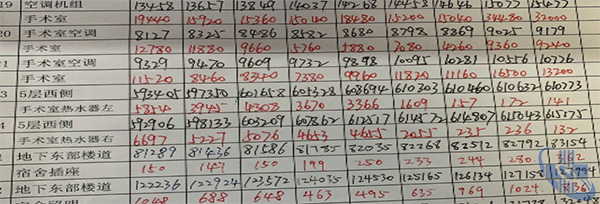 19 空调机组 13458 13657 13849 14037 14268 14458 14646 15077 15477
手术室 19440 15920 15360 15040 18480 15200 15040 34480 32000
20 手术室空调 8127 8325 8486 8582 8680 8798 8869 9025 9179
手术室 12780 11880 9660 5760 5880 7080 4260 9360 9240
21 手术室空调 9329 9470 9609 9732 9898 10095 10281 10556 10776
手术室 11520 8460 8340 7380 9960 11820 11160 16500 13200
3 5层西侧 593405 597350 601658 605328 608694 610303 610460 610632 610773
手术室热水器左 5854 3945 4308 3670 3366 1609 157 172 141
4 5层西侧 592906 598133 603209 607862 612517 614572 614807 615043 615175
手术室热水器右 6697 5227 5076 4653 4655 2055 235 236 132
1 地下东部楼道 81289 81436 81586 81785 82035 82268 82512 82792 83154
宿舍插座 150 147 150 199 250 233 244 280 362
2 地下东部楼道 122236 122924 123572 124035 124530 125165 126134 127158
1048 688 648 463 495 635 969 1024